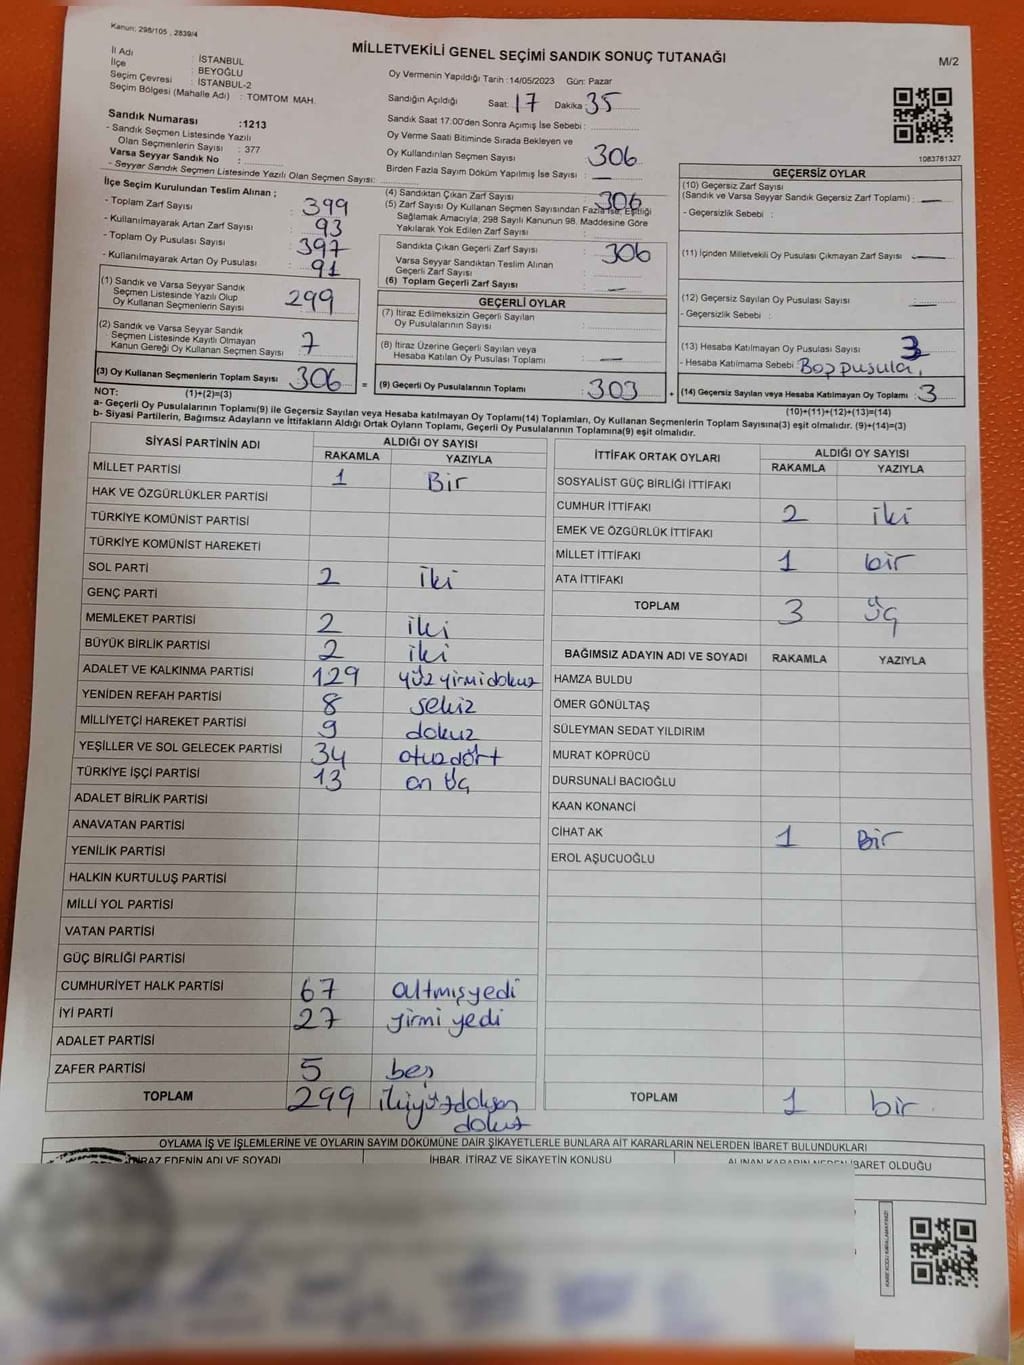 Kanun: 298/105 , 2839/4
MİLLETVEKİLİ GENEL SEÇİMİ SANDIK SONUÇ TUTANAĞI
M/2
İl Adı : İSTANBUL
İlçe : BEYOĞLU
Seçim Çevresi : İSTANBUL-2
Seçim Bölgesi (Mahalle Adı) : TOMTOM MAH.
Sandık Numarası :1213
- Sandık Seçmen Listesinde Yazılı
Olan Seçmenlerin Sayısı : 377
Varsa Seyyar Sandık No :
- Seyyar Sandık Seçmen Listesinde Yazılı Olan Seçmen Sayısı:
Oy Vermenin Yapıldığı Tarih :14/05/2023 Gün: Pazar
Sandığın Açıldığı Saat: 17 Dakika 35
Sandık Saat 17:00'den Sonra Açımış İse Sebebi :
Oy Verme Saati Bitiminde Sırada Bekleyen ve
Oy Kullandırılan Seçmen Sayısı : 306
Birden Fazla Sayım Döküm Yapılmış İse Sayısı : —
1083761327
İlçe Seçim Kurulundan Teslim Alınan ;
- Toplam Zarf Sayısı : 399
- Kullanılmayarak Artan Zarf Sayısı : 93
- Toplam Oy Pusulası Sayısı : 397
- Kullanılmayarak Artan Oy Pusulası : 91
(1) Sandık ve Varsa Seyyar Sandık
Seçmen Listesinde Yazılı Olup
Oy Kullanan Seçmenlerin Sayısı : 299
(2) Sandık ve Varsa Seyyar Sandık
Seçmen Listesinde Kayıtlı Olmayan
Kanun Gereği Oy Kullanan Seçmen Sayısı : 7
(3) Oy Kullanan Seçmenlerin Toplam Sayısı : 306 =
(1)+(2)=(3)
(4) Sandıktan Çıkan Zarf Sayısı : 306
(5) Zarf Sayısı Oy Kullanan Seçmen Sayısından Fazla İse, Eşitliği
Sağlamak Amacıyla, 298 Sayılı Kanunun 98. Maddesine Göre
Yakılarak Yok Edilen Zarf Sayısı :
Sandıkta Çıkan Geçerli Zarf Sayısı : 306
Varsa Seyyar Sandıktan Teslim Alınan
Geçerli Zarf Sayısı :
(6) Toplam Geçerli Zarf Sayısı : —
GEÇERLİ OYLAR
(7) İtiraz Edilmeksizin Geçerli Sayılan
Oy Pusulalarının Sayısı :
(8) İtiraz Üzerine Geçerli Sayılan veya
Hesaba Katılan Oy Pusulası Toplamı : —
(9) Geçerli Oy Pusulalarının Toplamı : 303 +
GEÇERSİZ OYLAR
(10) Geçersiz Zarf Sayısı
(Sandık ve Varsa Seyyar Sandık Geçersiz Zarf Toplamı) : —
- Geçersizlik Sebebi :
(11) İçinden Milletvekili Oy Pusulası Çıkmayan Zarf Sayısı : —
(12) Geçersiz Sayılan Oy Pusulası Sayısı : —
- Geçersizlik Sebebi :
(13) Hesaba Katılmayan Oy Pusulası Sayısı : 3
- Hesaba Katılmama Sebebi : Boş pusula.
(14) Geçersiz Sayılan veya Hesaba Katılmayan Oy Toplamı : 3
(10)+(11)+(12)+(13)=(14)
NOT:
a- Geçerli Oy Pusulalarının Toplamı(9) ile Geçersiz Sayılan veya Hesaba katılmayan Oy Toplamı(14) Toplamları, Oy Kullanan Seçmenlerin Toplam Sayısına(3) eşit olmalıdır. (9)+(14)=(3)
b- Siyasi Partilerin, Bağımsız Adayların ve İttifakların Aldığı Ortak Oyların Toplamı, Geçerli Oy Pusulalarının Toplamına(9) eşit olmalıdır.
SİYASİ PARTİNİN ADI ALDIĞI OY SAYISI
RAKAMLA YAZIYLA
MİLLET PARTİSİ 1 Bir
HAK VE ÖZGÜRLÜKLER PARTİSİ
TÜRKİYE KOMÜNİST PARTİSİ
TÜRKİYE KOMÜNİST HAREKETİ
SOL PARTİ 2 iki
GENÇ PARTİ
MEMLEKET PARTİSİ 2 iki
BÜYÜK BİRLİK PARTİSİ 2 iki
ADALET VE KALKINMA PARTİSİ 129 yüzyirmidokuz
YENİDEN REFAH PARTİSİ 8 sekiz
MİLLİYETÇİ HAREKET PARTİSİ 9 dokuz
YEŞİLLER VE SOL GELECEK PARTİSİ 34 otuzdört
TÜRKİYE İŞÇİ PARTİSİ 13 on üç
ADALET BİRLİK PARTİSİ
ANAVATAN PARTİSİ
YENİLİK PARTİSİ
HALKIN KURTULUŞ PARTİSİ
MİLLİ YOL PARTİSİ
VATAN PARTİSİ
GÜÇ BİRLİĞİ PARTİSİ
CUMHURİYET HALK PARTİSİ 67 altmışyedi
İYİ PARTİ 27 yirmi yedi
ADALET PARTİSİ
ZAFER PARTİSİ 5 beş
TOPLAM 299 ikiyüzdoksan
dokuz
İTTİFAK ORTAK OYLARI ALDIĞI OY SAYISI
RAKAMLA YAZIYLA
SOSYALİST GÜÇ BİRLİĞİ İTTİFAKI
CUMHUR İTTİFAKI 2 iki
EMEK VE ÖZGÜRLÜK İTTİFAKI
MİLLET İTTİFAKI 1 bir
ATA İTTİFAKI
TOPLAM 3 üç
BAĞIMSIZ ADAYIN ADI VE SOYADI RAKAMLA YAZIYLA
HAMZA BULDU
ÖMER GÖNÜLTAŞ
SÜLEYMAN SEDAT YILDIRIM
MURAT KÖPRÜCÜ
DURSUNALİ BACIOĞLU
KAAN KONANCİ
CİHAT AK 1 Bir
EROL AŞUCUOĞLU
TOPLAM 1 bir
OYLAMA İŞ VE İŞLEMLERİNE VE OYLARIN SAYIM DÖKÜMÜNE DAİR ŞİKAYETLERLE BUNLARA AİT KARARLARIN NELERDEN İBARET BULUNDUKLARI
EDENİN ADI VE SOYADI İHBAR, İTİRAZ VE ŞİKAYETİN KONUSU ALINAN KARARIN NEDEN İBARET OLDUĞU